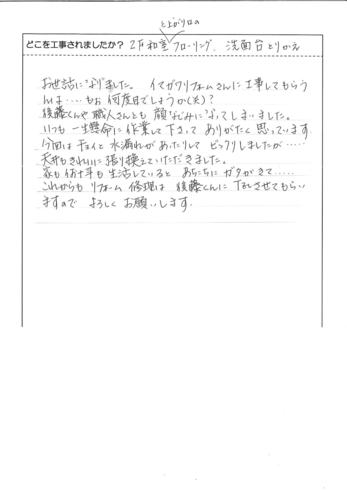 と上がり口の
どこを工事されましたか？ 2F和室フローリング、洗面台とりかえ
お世話になりました。 イマガワリフォームさんに工事してもらう
んは‥‥もぉ何度目でしょうか(笑)？
後藤くんや職人さんとも顔なじみになってしまいました。
いつも一生懸命に作業して下さってありがたく思っています
今回はチョイと水漏れがあったりしてビックリしましたが……
天井もきれいに張り換えていただきました。
家も何十年も生活しているとあちこちにガタがきて‥‥‥
これからもリフォーム修理は後藤くんにTELさせてもらい
ますのでよろしくお願いします。